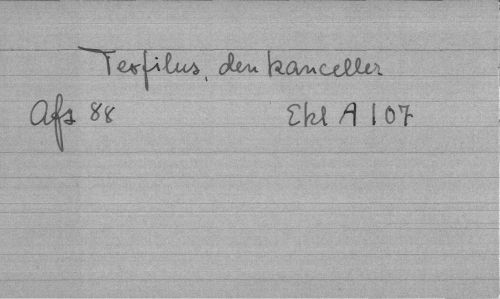 Teofilus, den kanceller
Afs 88 Ekl A 107